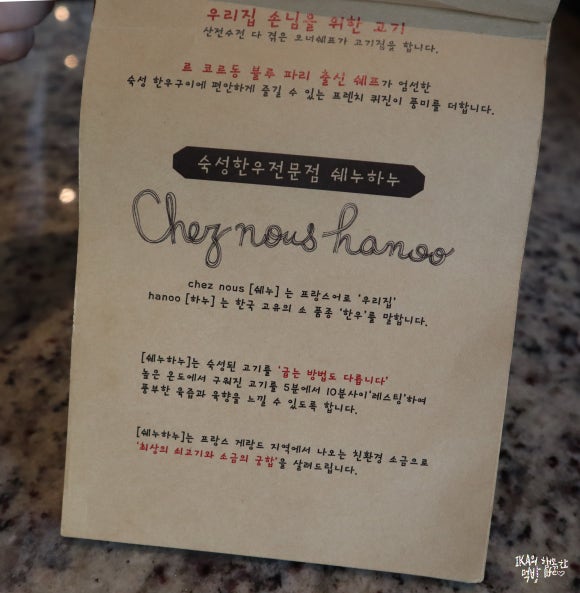 우리집 손님을 위한 고기
산전수전 다 겪은 오너쉐프가 고기정을 합니다.
르 코르동 블루 파리 출신 쉐프가 엄선한
숙성 한우구이에 편안하게 즐길 수 있는 프렌치 퀴진이 풍미를 더합니다.
숙성한우전문점 쉐누하누
Chez nous hanoo
chez nous [쉐누] 는 프랑스어로 '우리집'
hanoo [하누] 는 한국 고유의 소 품종 '한우'를 말합니다.
[쉐누하누]는 숙성된 고기를 '굽는 방법도 다릅니다'
높은 온도에서 구워진 고기를 5분에서 10분사이'레스팅'하여
풍부한 육즙과 육향을 느낄 수 있도록 합니다.
[쉐누하누]는 프랑스 게랑드 지역에서 나오는 친환경 소금으로
'최상의 쇠고기와 소금의 궁합'을 살려드립니다.
IKA의 행복한
먹방